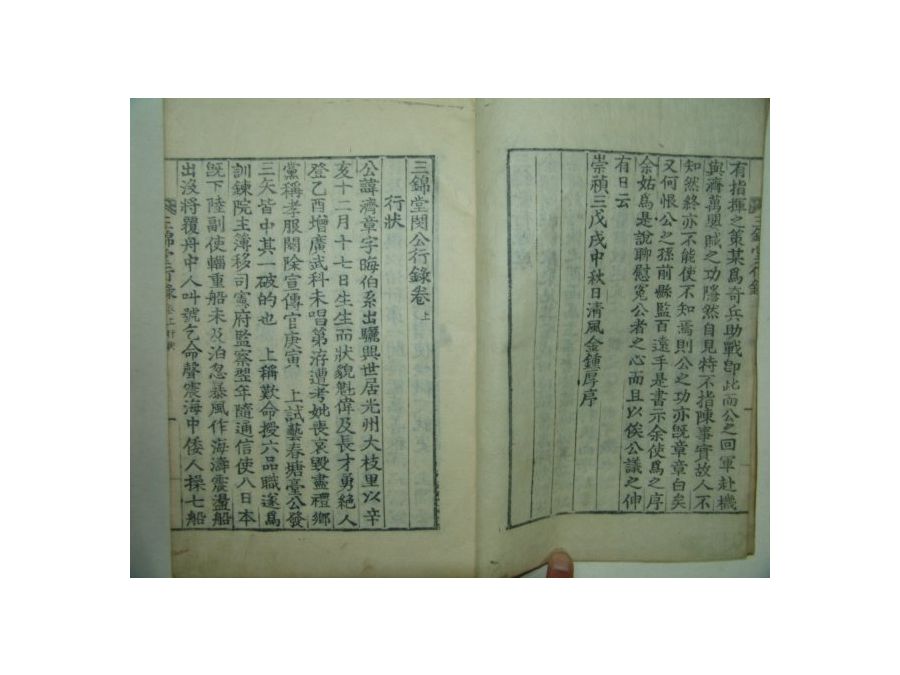 有指揮之策某爲奇兵助戰卽此而公之回軍赴機
與濟萬迴賊之功隱然自見特不指陳事實故人不
知然終亦不能使不知焉則公之功亦旣章章白矣
又何恨公之孫前縣監百遠手是書示余使爲之序
余姑爲是說聊慰寃公者之心而且以俟公議之伸
有日云
崇禎三戊戌中秋日清風金鍾厚序
三錦堂閔公行錄卷上
行狀
公諱濟章字晦伯系出驪興世居光州大枝里以辛
亥十二月十七日生生而狀貌魁偉及長才勇絶人
登乙酉增廣武科未唱第洊遭考妣喪哀毀盡禮鄕
黨稱孝服闋除宣傳官庚寅 上試藝春塘臺公發
三矢皆中其一破的也 上稱歎命授六品職遂爲
訓鍊院主簿移司憲府監察翌年隨通信使入日本
旣下陸副使輜重船未及泊忽暴風作海濤震盪船
出沒將覆舟中人叫號乞命聲震海中倭人操七船
三錦堂行錄 卷上行狀